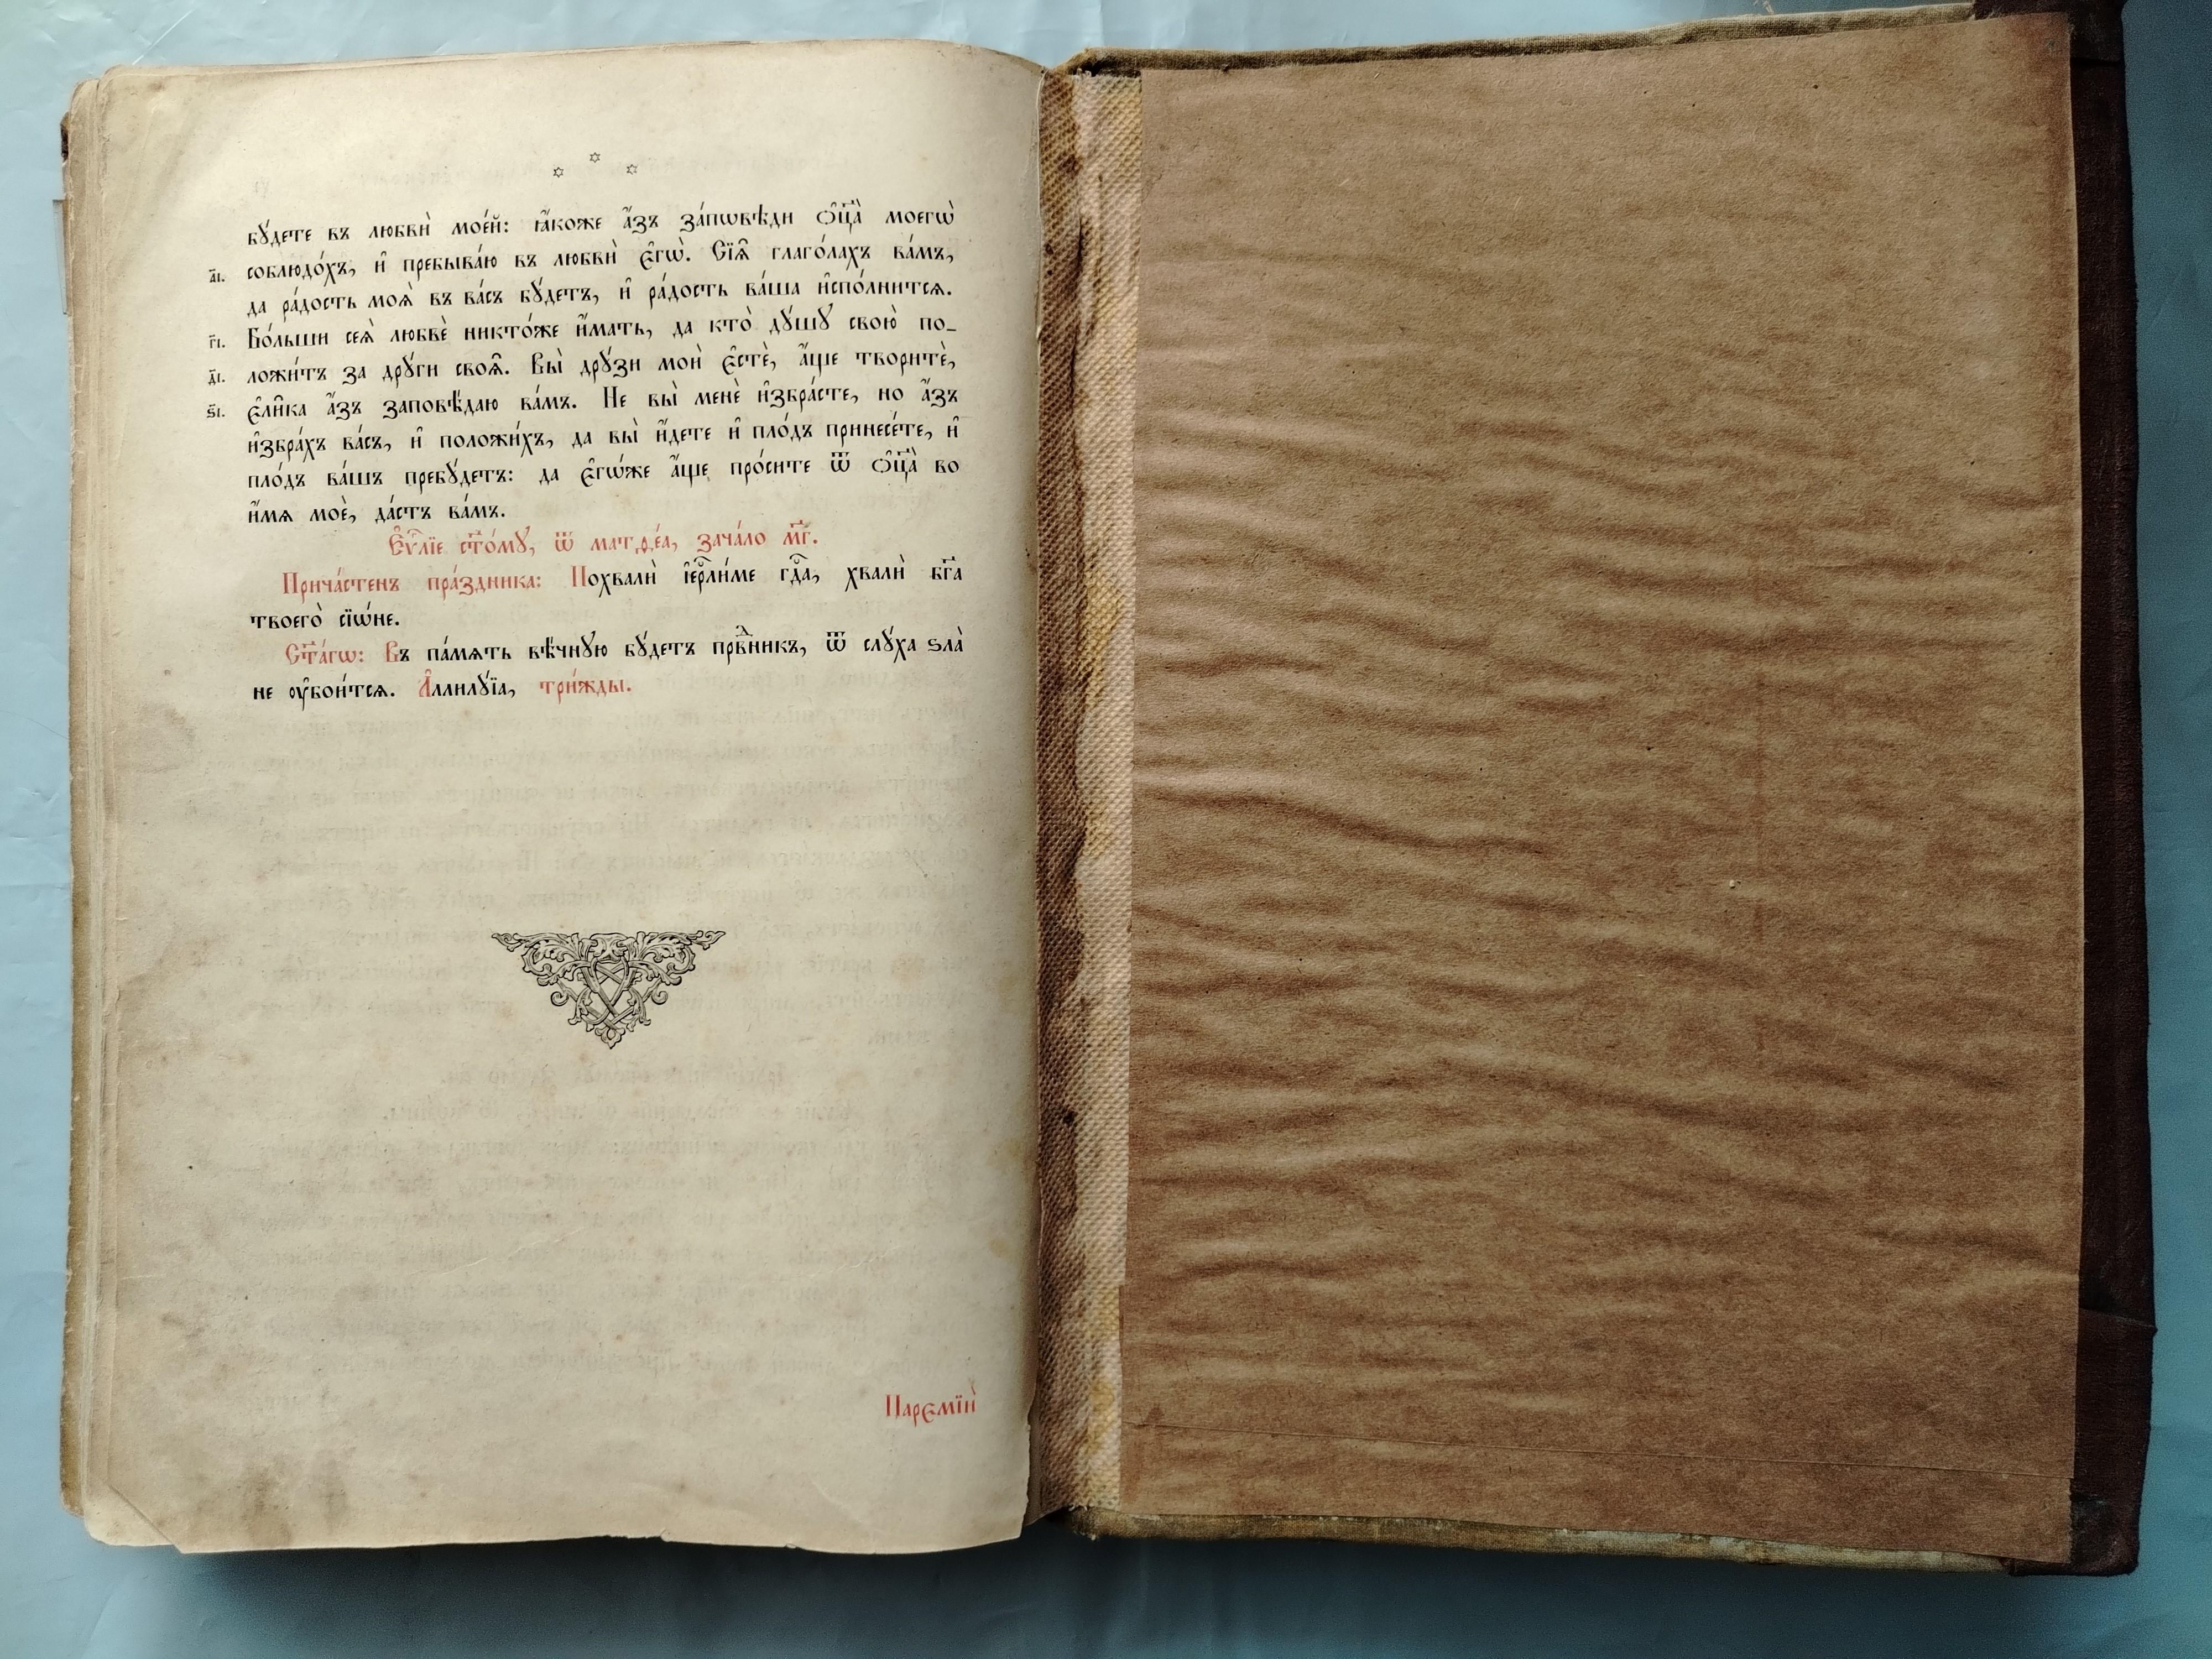 бꙋ́дете въ любвѝ мое́й: ꙗ҆́коже а҆́зъ за́пѡвѣди ѻ҆ц҃а̀ моегѡ̀
а҃і. соблюдо́хъ, и҆ пребыва́ю въ любвѝ є҆гѡ̀. Сїѧ̑ глаго́лахъ ва́мъ,
да ра́дость моѧ̀ въ ва́съ бꙋ́детъ, и҆ ра́дость ва́ша и҆спо́лнитсѧ.
г҃і. Бо́льши сеѧ̀ любвѐ никто́же и҆́мать, да кто̀ дꙋ́шꙋ свою̀ по-
д҃і. ложи́тъ за дрꙋ́ги своѧ̑. Вы̀ дрꙋ́зи моѝ є҆стѐ, а҆́ще творитѐ,
ѕ҃і. є҆ли̑ка а҆́зъ заповѣ́даю ва́мъ. Не вы̀ менѐ и҆збра́сте, но а҆́зъ
и҆збра́хъ ва́съ, и҆ положи́хъ, да вы̀ и҆́дете и҆ пло́дъ принесе́те, и҆
пло́дъ ва́шъ пребꙋ́детъ: да є҆гѡ́же а҆́ще про́сите ѿ ѻ҆ц҃а̀ во
и҆́мѧ моѐ, да́стъ ва́мъ.
Є҆ѵⷢ҇лїе ст҃о́мꙋ, ѿ матѳе́а, зача́ло м҃г.
Прича́стенъ пра́здника: Похвалѝ і҆ерⷭ҇ли́ме гдⷭ҇а, хвалѝ бг҃а
твоего̀ сїѡ́не.
Ст҃а́гѡ: Въ па́мѧть вѣ́чнꙋю бꙋ́детъ првⷣникъ, ѿ слꙋ́ха ѕла̀
не ᲂу҆бои́тсѧ. А҆ллилꙋ́їа, три́жды.
Парємїи̑